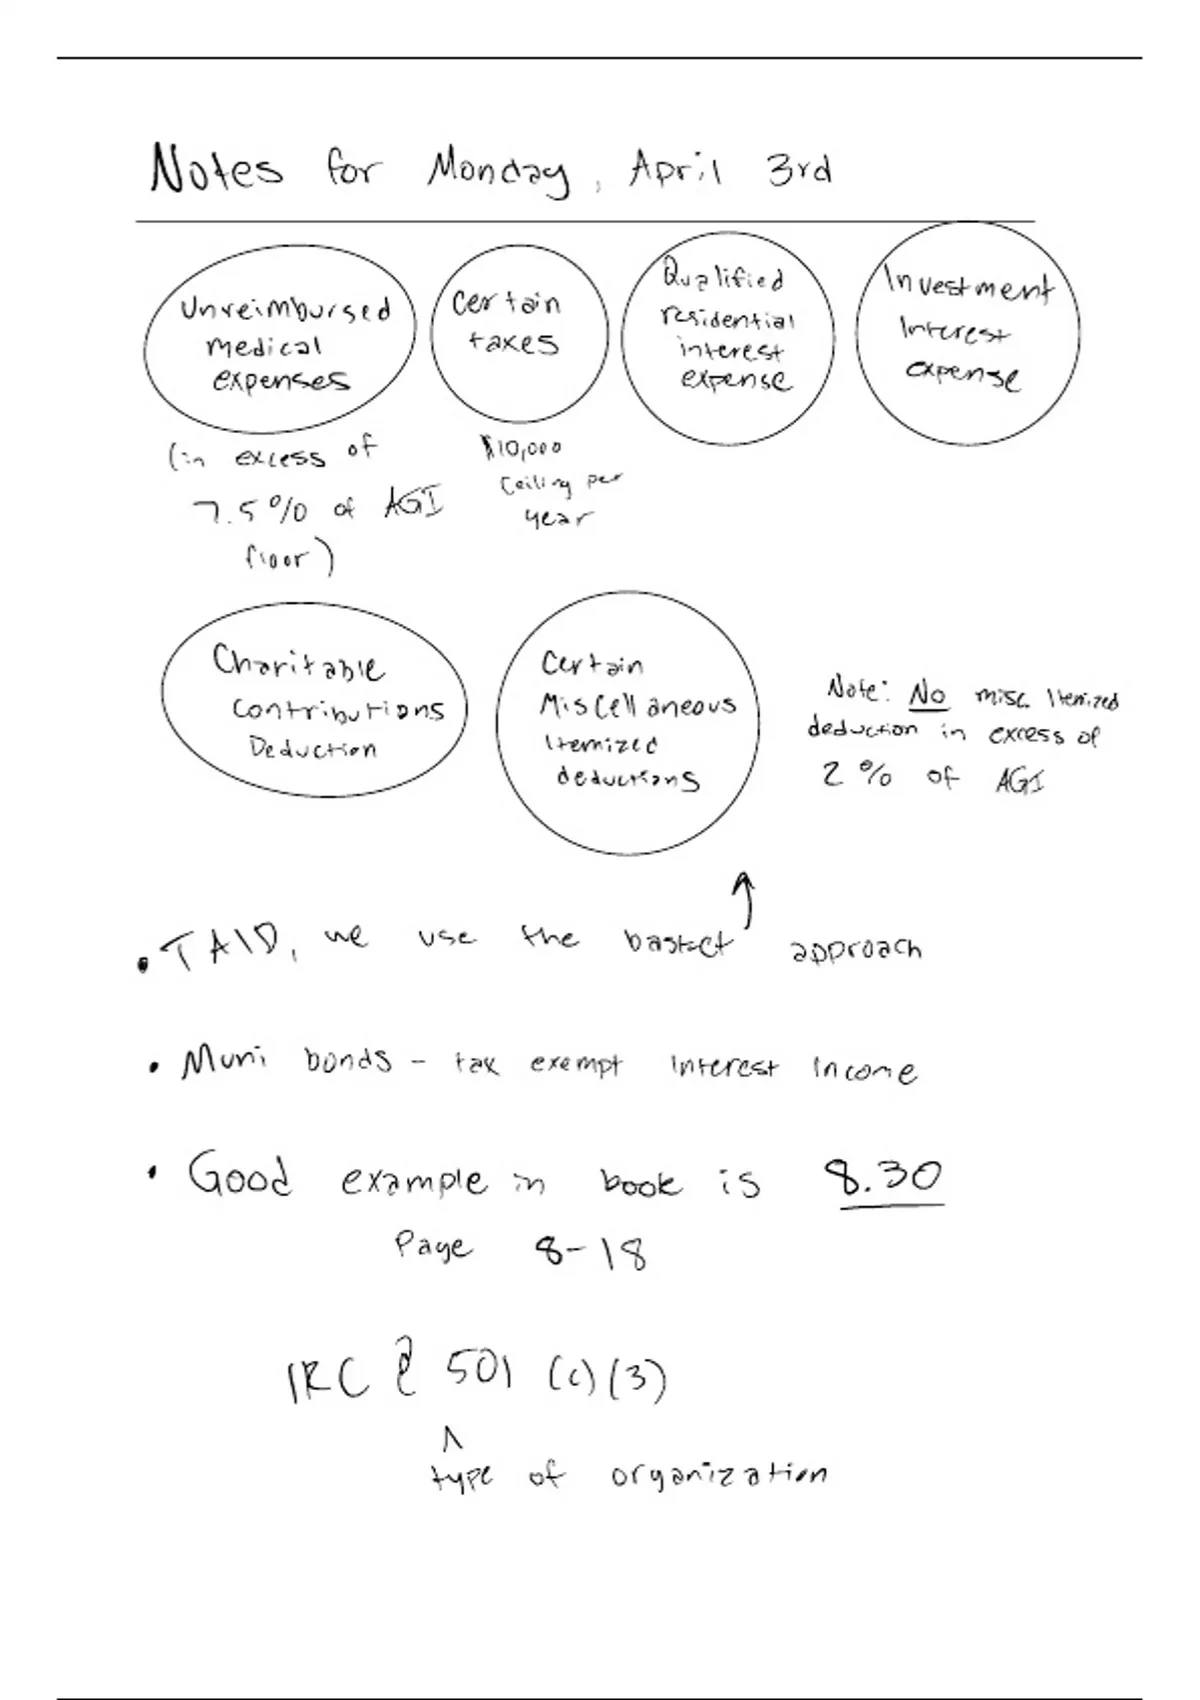 Notes for Monday, April 3rd
Unreimbursed
medical
expenses
(in excess of
7.5% of AGI
floor)
Certain
taxes
$10,000
Ceiling per
year
Qualified
residential
interest
expense
Investment
Interest
expense
Charitable
Contributions
Deduction
Certain
Miscellaneous
Itemized
deductions
Note: No misc. Itemized
deduction in excess of
2% of AGI
• TAID, we use the basket approach
• Muni bonds - tax exempt interest income
• Good example in book is 8.30
Page 8-18
IRC § 501 (c)(3)
^
type of organization